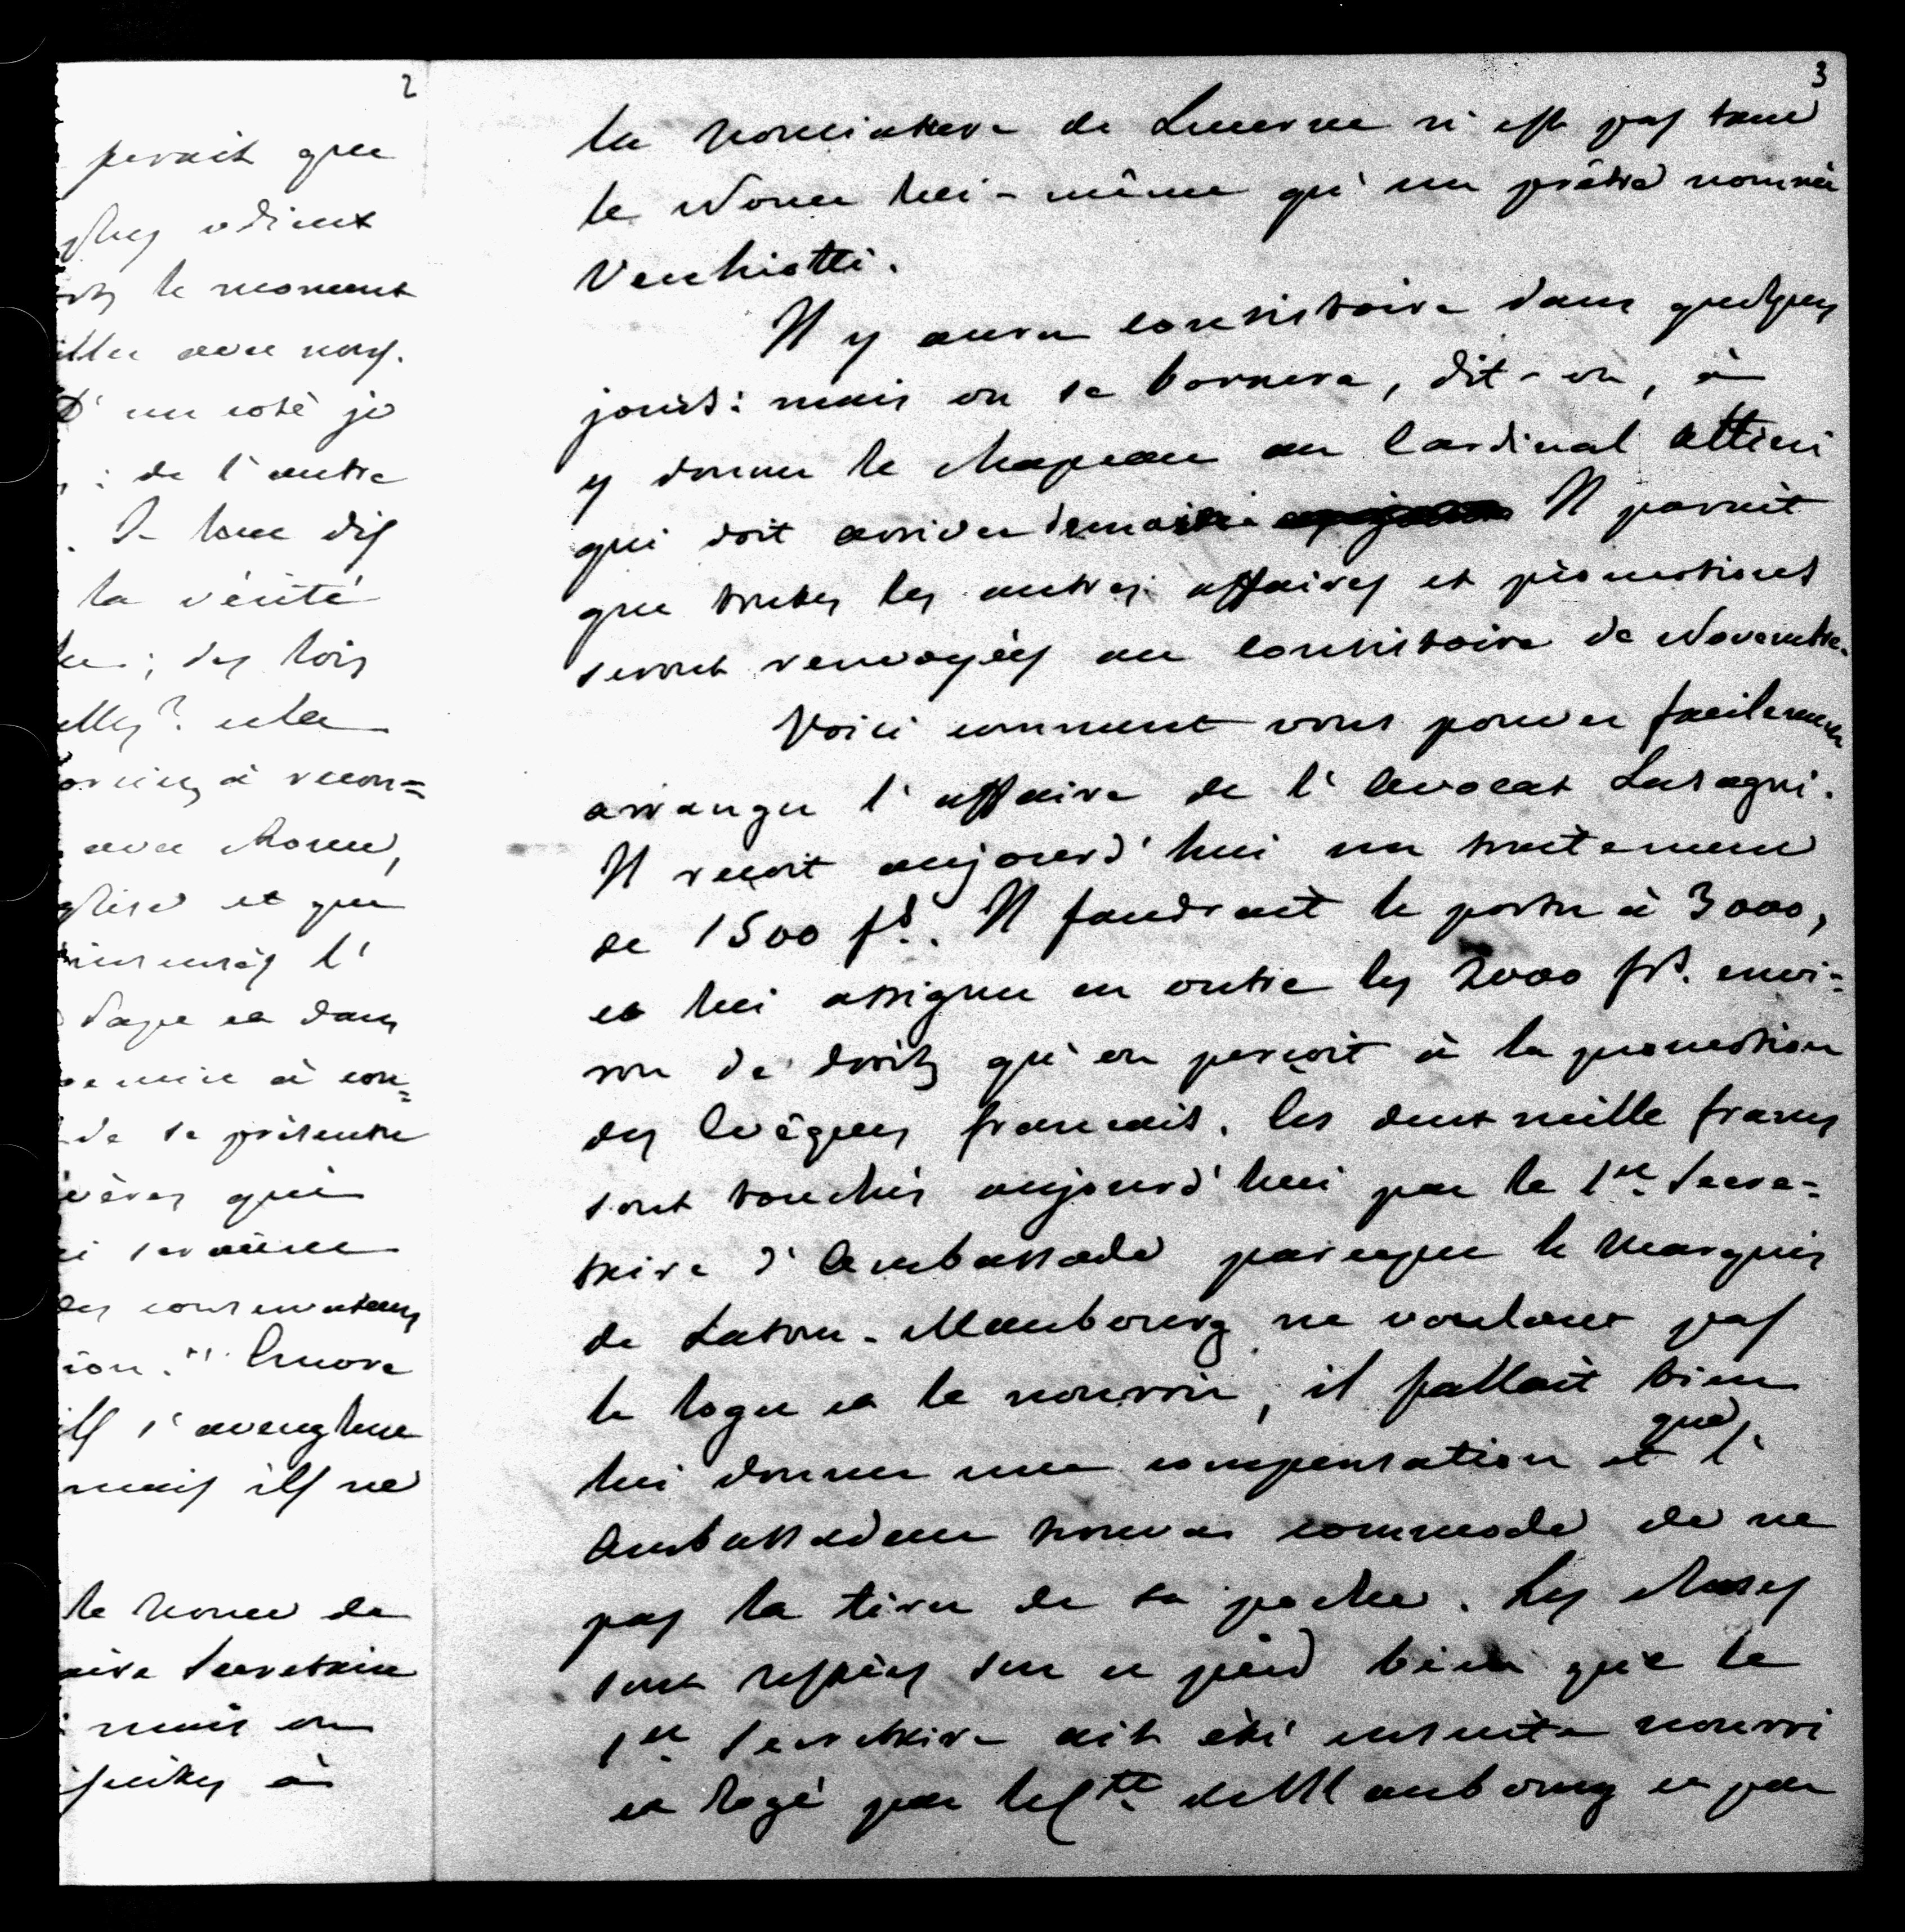 2
perait que
plus odieux
le moment
avec nous.
D'un coté je
: de l'autre
la vérité
; des lois
cela
à recon=
avec Rome,
et que
l'
Pape et dans
à con=
de se présenter
qui
conservateurs
Encore
ils s'aveuglent
mais ils ne
le nonce de
Secretaire
mais on
à
3
la nonciature de Lucerne n'est pas tant
le Nonce lui-même qu'un prêtre nommé
Vecchiotti.
Il y aura consistoire dans quelques
jours: mais on se bornera, dit-on, à
y donner le chapeau au Cardinal Altieri
qui doit arriver demain Il parait
que toutes les autres affaires et promotions
seront renvoyées au consistoire de Novembre.
Voici comment vous pouvez facilement
arranger l'affaire de l'Avocat Lasagni.
Il reçoit aujourd'hui un traitement
de 1500 fs. Il faudrait le porter à 3000,
et lui assigner en outre les 2000 frs. envi=
ron de droits qu'on perçoit à la promotion
des Evêques français. Ces deux mille francs
sont touchés aujourd'hui par le 1er Secre=
taire d'Ambassade parceque le Marquis
de Latour-Maubourg ne voulant pas
le loger et le nourrir, il fallait bien
lui donner une compensation et que l'
Ambassadeur trouva commode de ne
pas la tirer de sa poche. Les choses
sont restées sur ce pied bien que le
1er Secretaire ait été ensuite nourri
et logé par le Cte de Maubourg et par